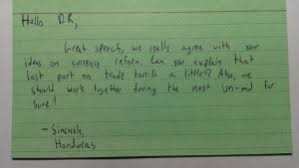 Hello DR,
Great speech, we really agree with your
ideas on currency reform. Can you explain that
last part on trade tariffs a little? Also, we
should work together during the next un-mod for
sure!
- Sincerely,
Honduras